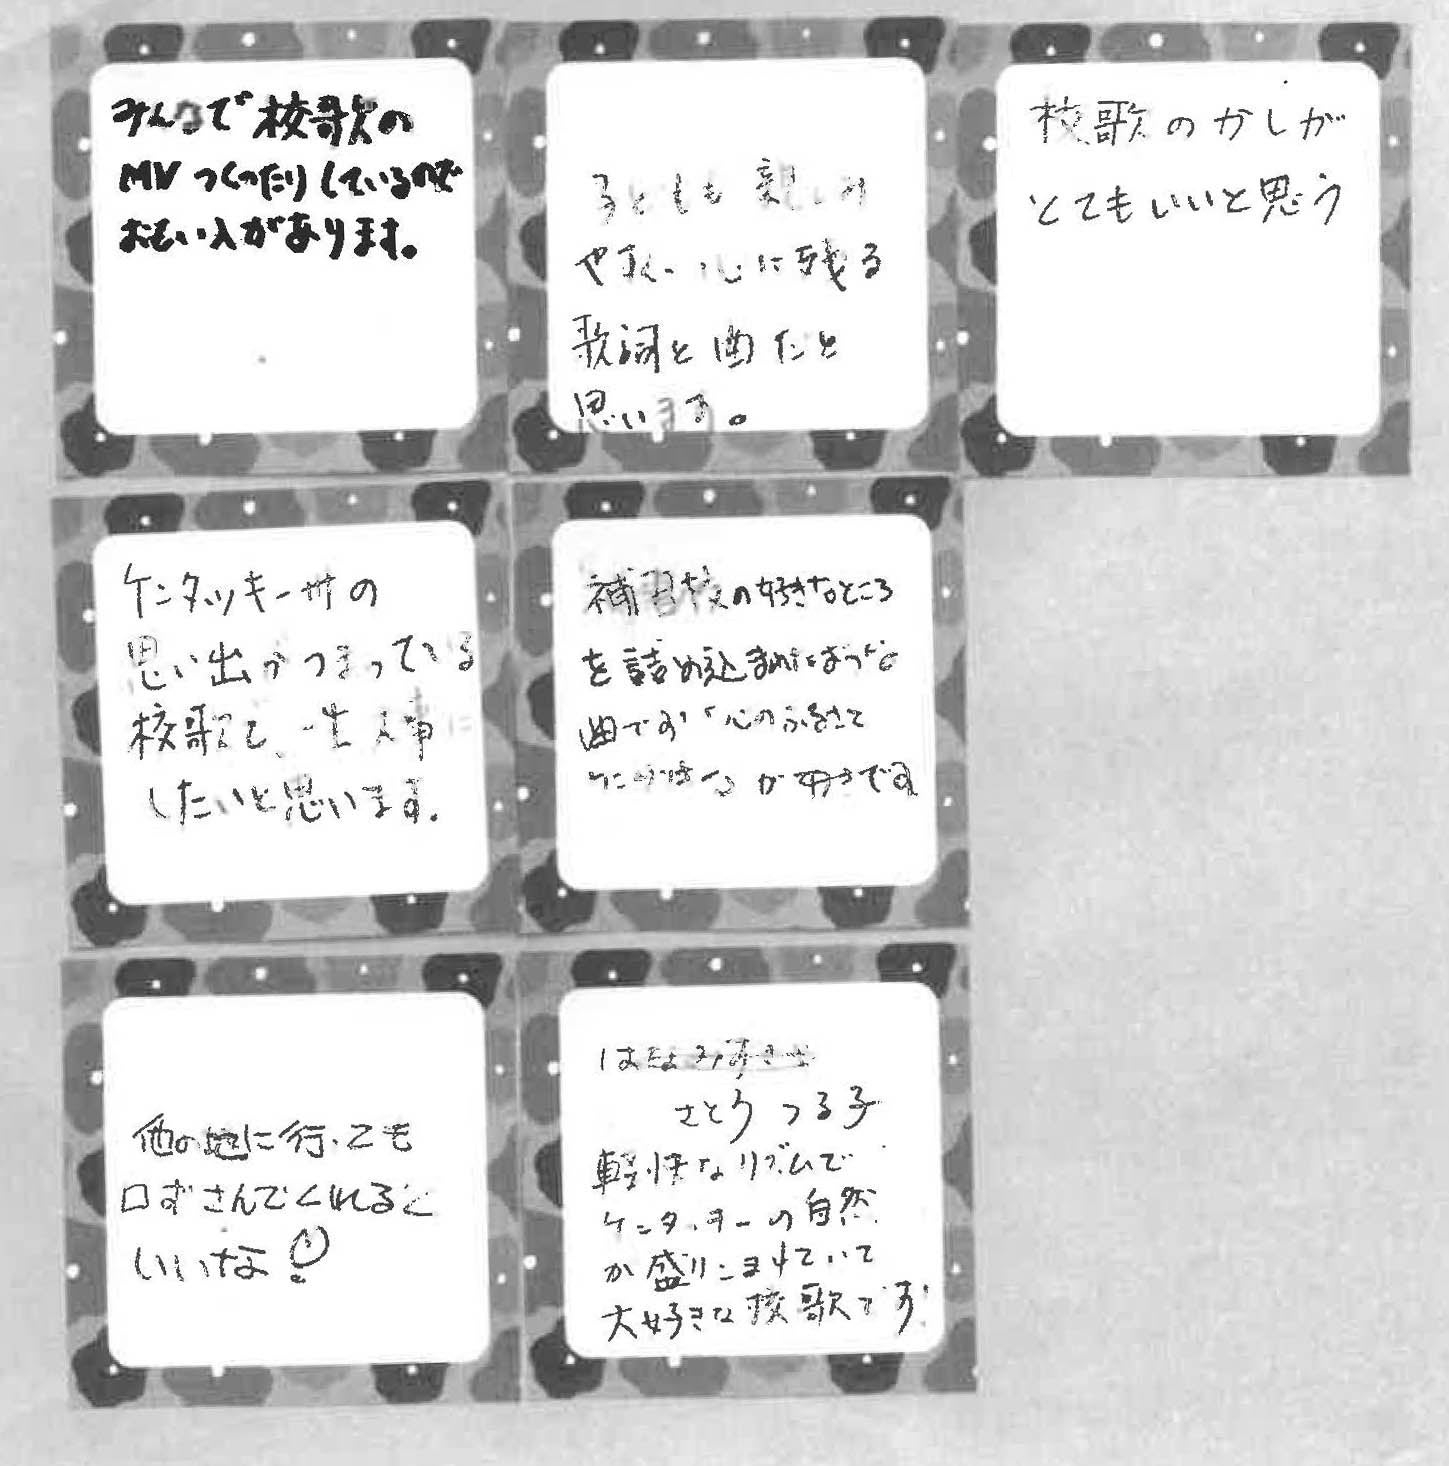 みんなで校歌の
MVつくったりしているので
おもい入があります。
子どもも親しみ
やすく、心に残る
歌詞と曲だと
思います。
校歌のかしが
とてもいいと思う
ケンタッキー州の
思い出がつまっている
校歌で、一生大事に
したいと思います。
補習校の好きなところ
を詰め込まれたような
曲です。心のふるさと
が好きです
他の地に行っても
口ずさんでくれると
いいな!
はなみずきさき
さとう つる子
軽快なリズムで
ケンタッキーの自然
が盛りこまれていて
大好きな校歌です!